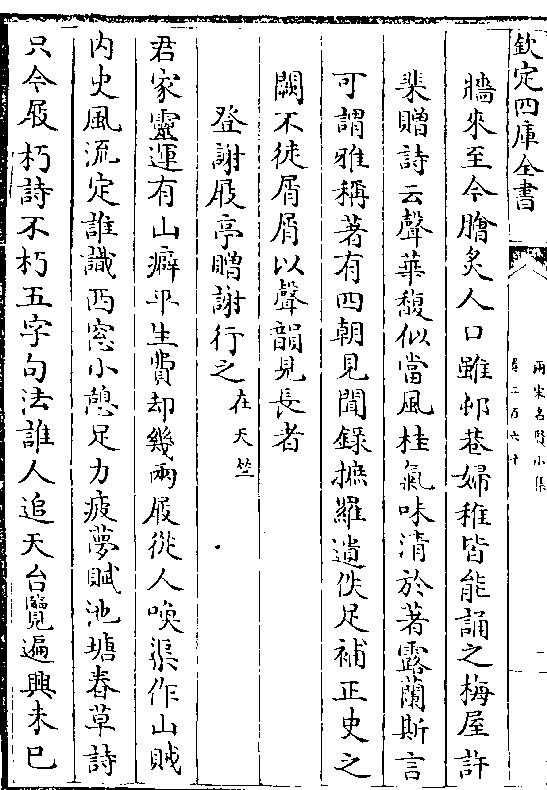 欽定四庫全書
兩宋名賢小集
牆來至今膾炙人口雖邨巷婦稚皆能誦之梅屋許
棐贈詩云聲華馥似當風桂氣味清於著露蘭斯言
可謂雅稱著有四朝見聞錄摭羅遺佚足補正史之
闕不徒屑屑以聲韻見長者
登謝屐亭贈謝行之在天竺
君家靈運有山癖平生費却幾兩屐從人喚渠作山賊
内史風流定誰識西窓小憩足力疲夢賦池塘春草詩
只今屐朽詩不朽五字句法誰人追天台覽遍興未已